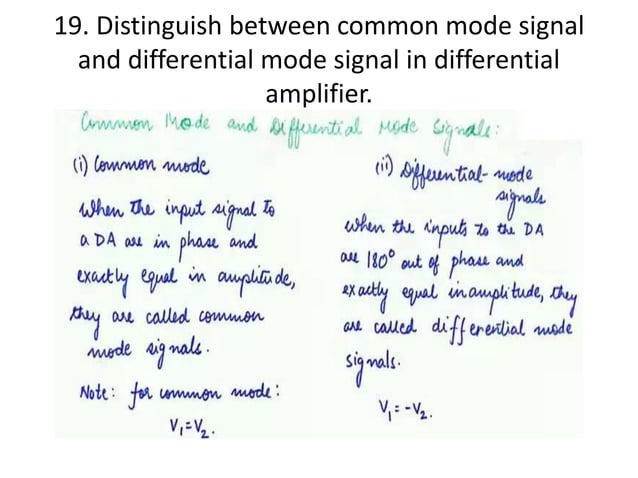 19. Distinguish between common mode signal
and differential mode signal in differential
amplifier.
Common Mode and Differential Mode Signals:
(i) Common mode
When the input signal to
a DA are in phase and
exactly equal in amplitude,
they are called common
mode signals.
Note: for common mode:
V₁=V₂.
(ii) Differential-mode
signals
when the inputs to the DA
are 180° out of phase and
exactly equal in amplitude, they
are called differential mode
signals.
V₁=-V₂.